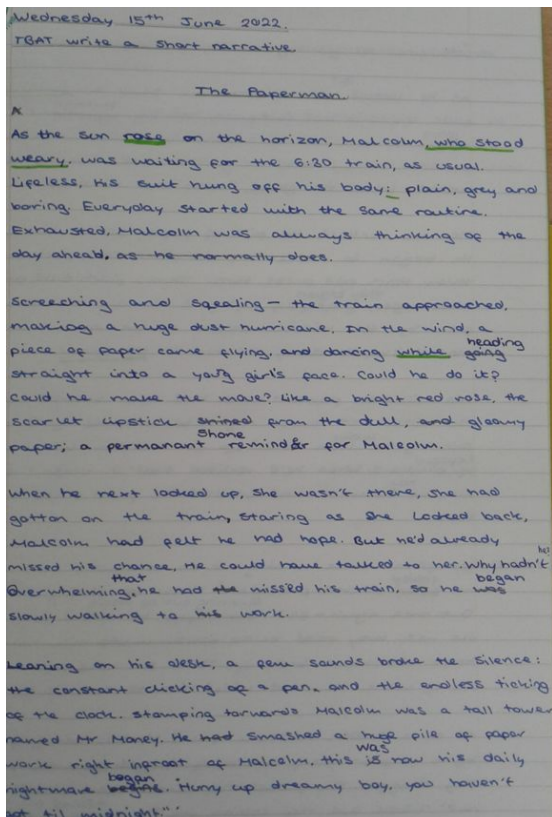 Wednesday 15th June 2022.
TBAT write a short narrative.
The Paperman
As the sun rose on the horizon, Malcolm, who stood
weary, was waiting for the 6:30 train, as usual.
Lifeless, his suit hung off his body: plain, grey and
boring. Everyday started with the same routine.
Exhausted, Malcolm was always thinking of the
day ahead, as he normally does.
Screeching and sqealing - the train approached,
making a huge dust hurricane. In the wind, a
piece of paper came flying, and dancing while going heading
straight into a young girl's face. Could he do it?
Could he make the move? Like a bright red rose, the
scarlet lipstick shined from the dull, and gloomy
shone
paper; a permanant reminder for Malcolm.
When he next looked up, she wasn't there, she had
gotton on the train, staring as she looked back,
Malcolm had felt he had hope. But he'd already
missed his chance, He could have talked to her. Why hadn't he?
Overwhelming, that he had the missed his train, so he was began
slowly walking to his work.
Leaning on his desk, a few sounds broke the silence:
the constant clicking of a pen, and the endless ticking
of the clock. Stamping forwards Malcolm was a tall tower
named Mr Money. He had smashed a huge pile of paper
work right infront of Malcolm, this is was now his daily
nightmare begins began. "Hurry up dreamy boy, you haven't
got til midnight".